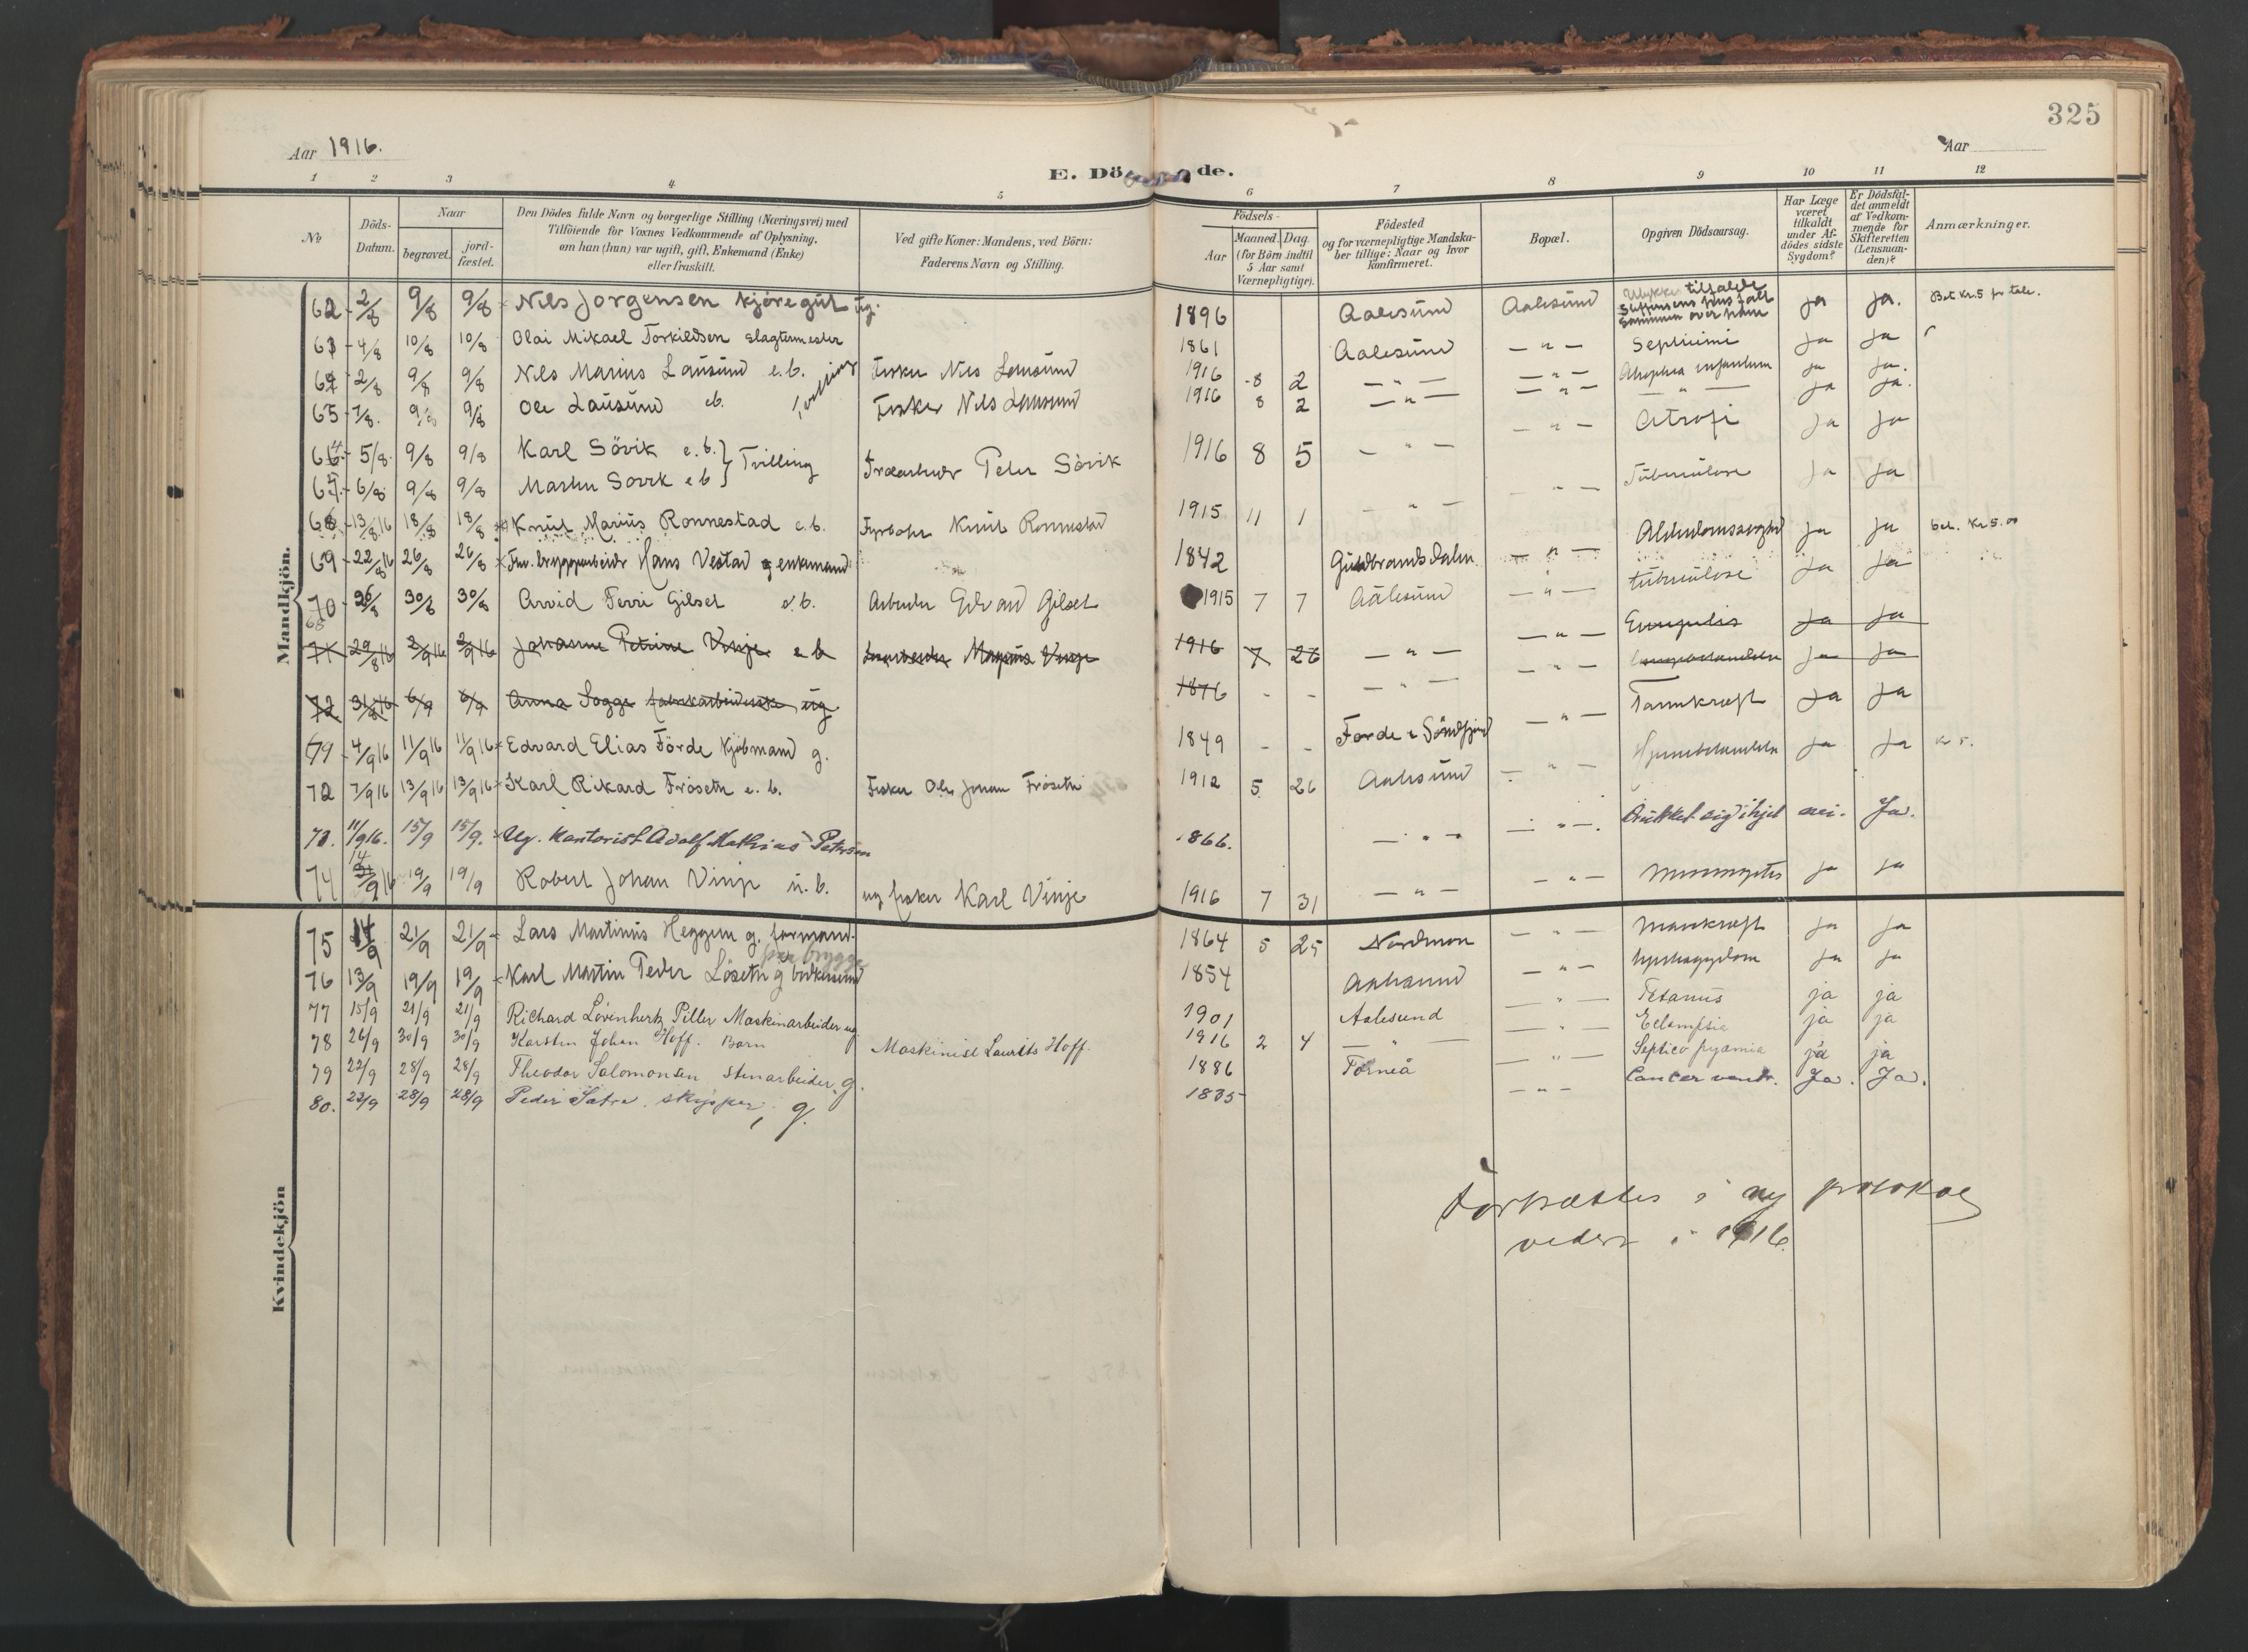 325
Aar 1916.
Aar
E. Dö de.
1 2 3 4 5 6 7 8 9 10 11 12
No
Döds-Datum.
Naar
begravet.
jord-fæstet.
Den Dödes fulde Navn og borgerlige Stilling (Næringsvei) med
Tilföiende for Voxnes Vedkommende af Oplysning,
om han (hun) var ugift, gift, Enkemand (Enke)
eller fraskilt.
Ved gifte Koner: Mandens, ved Börn:
Faderens Navn og Stilling.
Födsels-
Aar
Maaned.
Dag.
(for Börn indtil
5 Aar samt
Værnepligtige).
Födested
og for værnepligtige Mandska-
ber tillige: Naar og hvor
Konfirmeret.
Bopæl.
Opgiven Dödsaarsag.
Har Læge
været
tilkaldt
under Af-
dödes sidste
Sygdom?
Er Dödsfal-
det anmeldt
af Vedkom-
mende for
Skifteretten
(Lensman-
den)?
Anmærkninger.
Mandkjön.
62 2/8 9/8 9/8 Nils Jorgensen kjöregut ug. 1896 Aalesund Aalesund ja ja. Bet Kr. 5 fr tale.
63 4/8 10/8 10/8 Olai Mikael Torkildsen slagtermester 1861 Aalesund — " — ja ja
64 2/8 9/8 9/8 Nils Marius Lausund e.b. Fisker Nils Lausund 1916 8 2 — " — — " — ja ja.
65 7/8. 9/8 9/8 Ole Lausund eb. Fisker Nils Lausund 1916 8 2 — " — — " — — " — ja ja.
66. 5/8. 9/8 9/8 Karl Sövik e.b. } Tvilling Peter Sövik 1916 8 5 — " — — " — Atrofi ja ja
67. 6/8 9/8 9/8 Martin Sövik e b
68 13/8.16 18/8 18/8 Knut Marius Ronnestad e.b. Fyrbøter Knut Ronnestad 1915 11 1 — " — — " — Tuberculose ja ja
69 22/8 16 26/8 26/8 Hans Vestad enkemand 1842 Gudbrandsdalen — " — ja ja bet. Kr 5.00
70 26/8 30/8 30/8 Arvid Ferri Gilset e.b. Arbeider Edvard Gilset 1915 7 7 Aalesund — " — tuberculose ja ja
71 29/8 16 2/9 16 2/9 16 Johanne Petrine Vinje e b Magnus Vinje 1916 7 26 — " — — " — ja ja
72 31/8 16 6/9 6/9 Anna Sogge fabrikarbeiderske ug 1876 - - — " — — " — ja ja
4/9 16 11/9 16 11/9 16 Edvard Elias Förde Kjöbmand g. 1849 - - Förde i Söndfjord — " — Tarmkræft ja ja
72 7/9 16 13/9 16 13/9 16 Karl Rikard Fröseth e. b. Fisker Ole Johan Fröseth 1912 5 26 Aalesund — " — ja ja kr 5.
73. 11/9 16. 15/9 15/9. Ug. Kontorist Adolf Mathias Petersen 1866. — " — — " —. ihjel nei. Ja.
74 14/9 16 19/9 19/9 Robert Johan Vinje u. b. ug fisker Karl Vinje 1916 7 31 — " — — " — ja ja
Kvindekjön
75 14/9 21/9 21/9 Lars Martinus Heggem g. formand
paa brygge 1864 5 25 Nordmør — " — Mavekræft ja ja
76 13/9 19/9 19/9 Karl Martin Peder Löseth g 1854 Aalesund — " — ja ja
77 15/9 21/9 21/9 Richard Lövenhertz Piller Maskinarbeider ug 1901 Aalesund — " — Tetanus ja ja
78 26/9 30/9 30/9 Karsten Johan Hoff. Barn Maskinist Laurits Hoff. 1916 2 4 — " — — " — Eclampsia ja ja
79 22/9 28/9 28/9 Theodor Salomonsen Stenarbeider, g. 1886 Torneå — " — Septico pyæmia ja ja
80. 23/9 28/9 28/9 Peder Sætre. skipper, g. 1835 — " — Cancer ventr. Ja. Ja.
Fortsættes i ny protokol
videre i 1916.